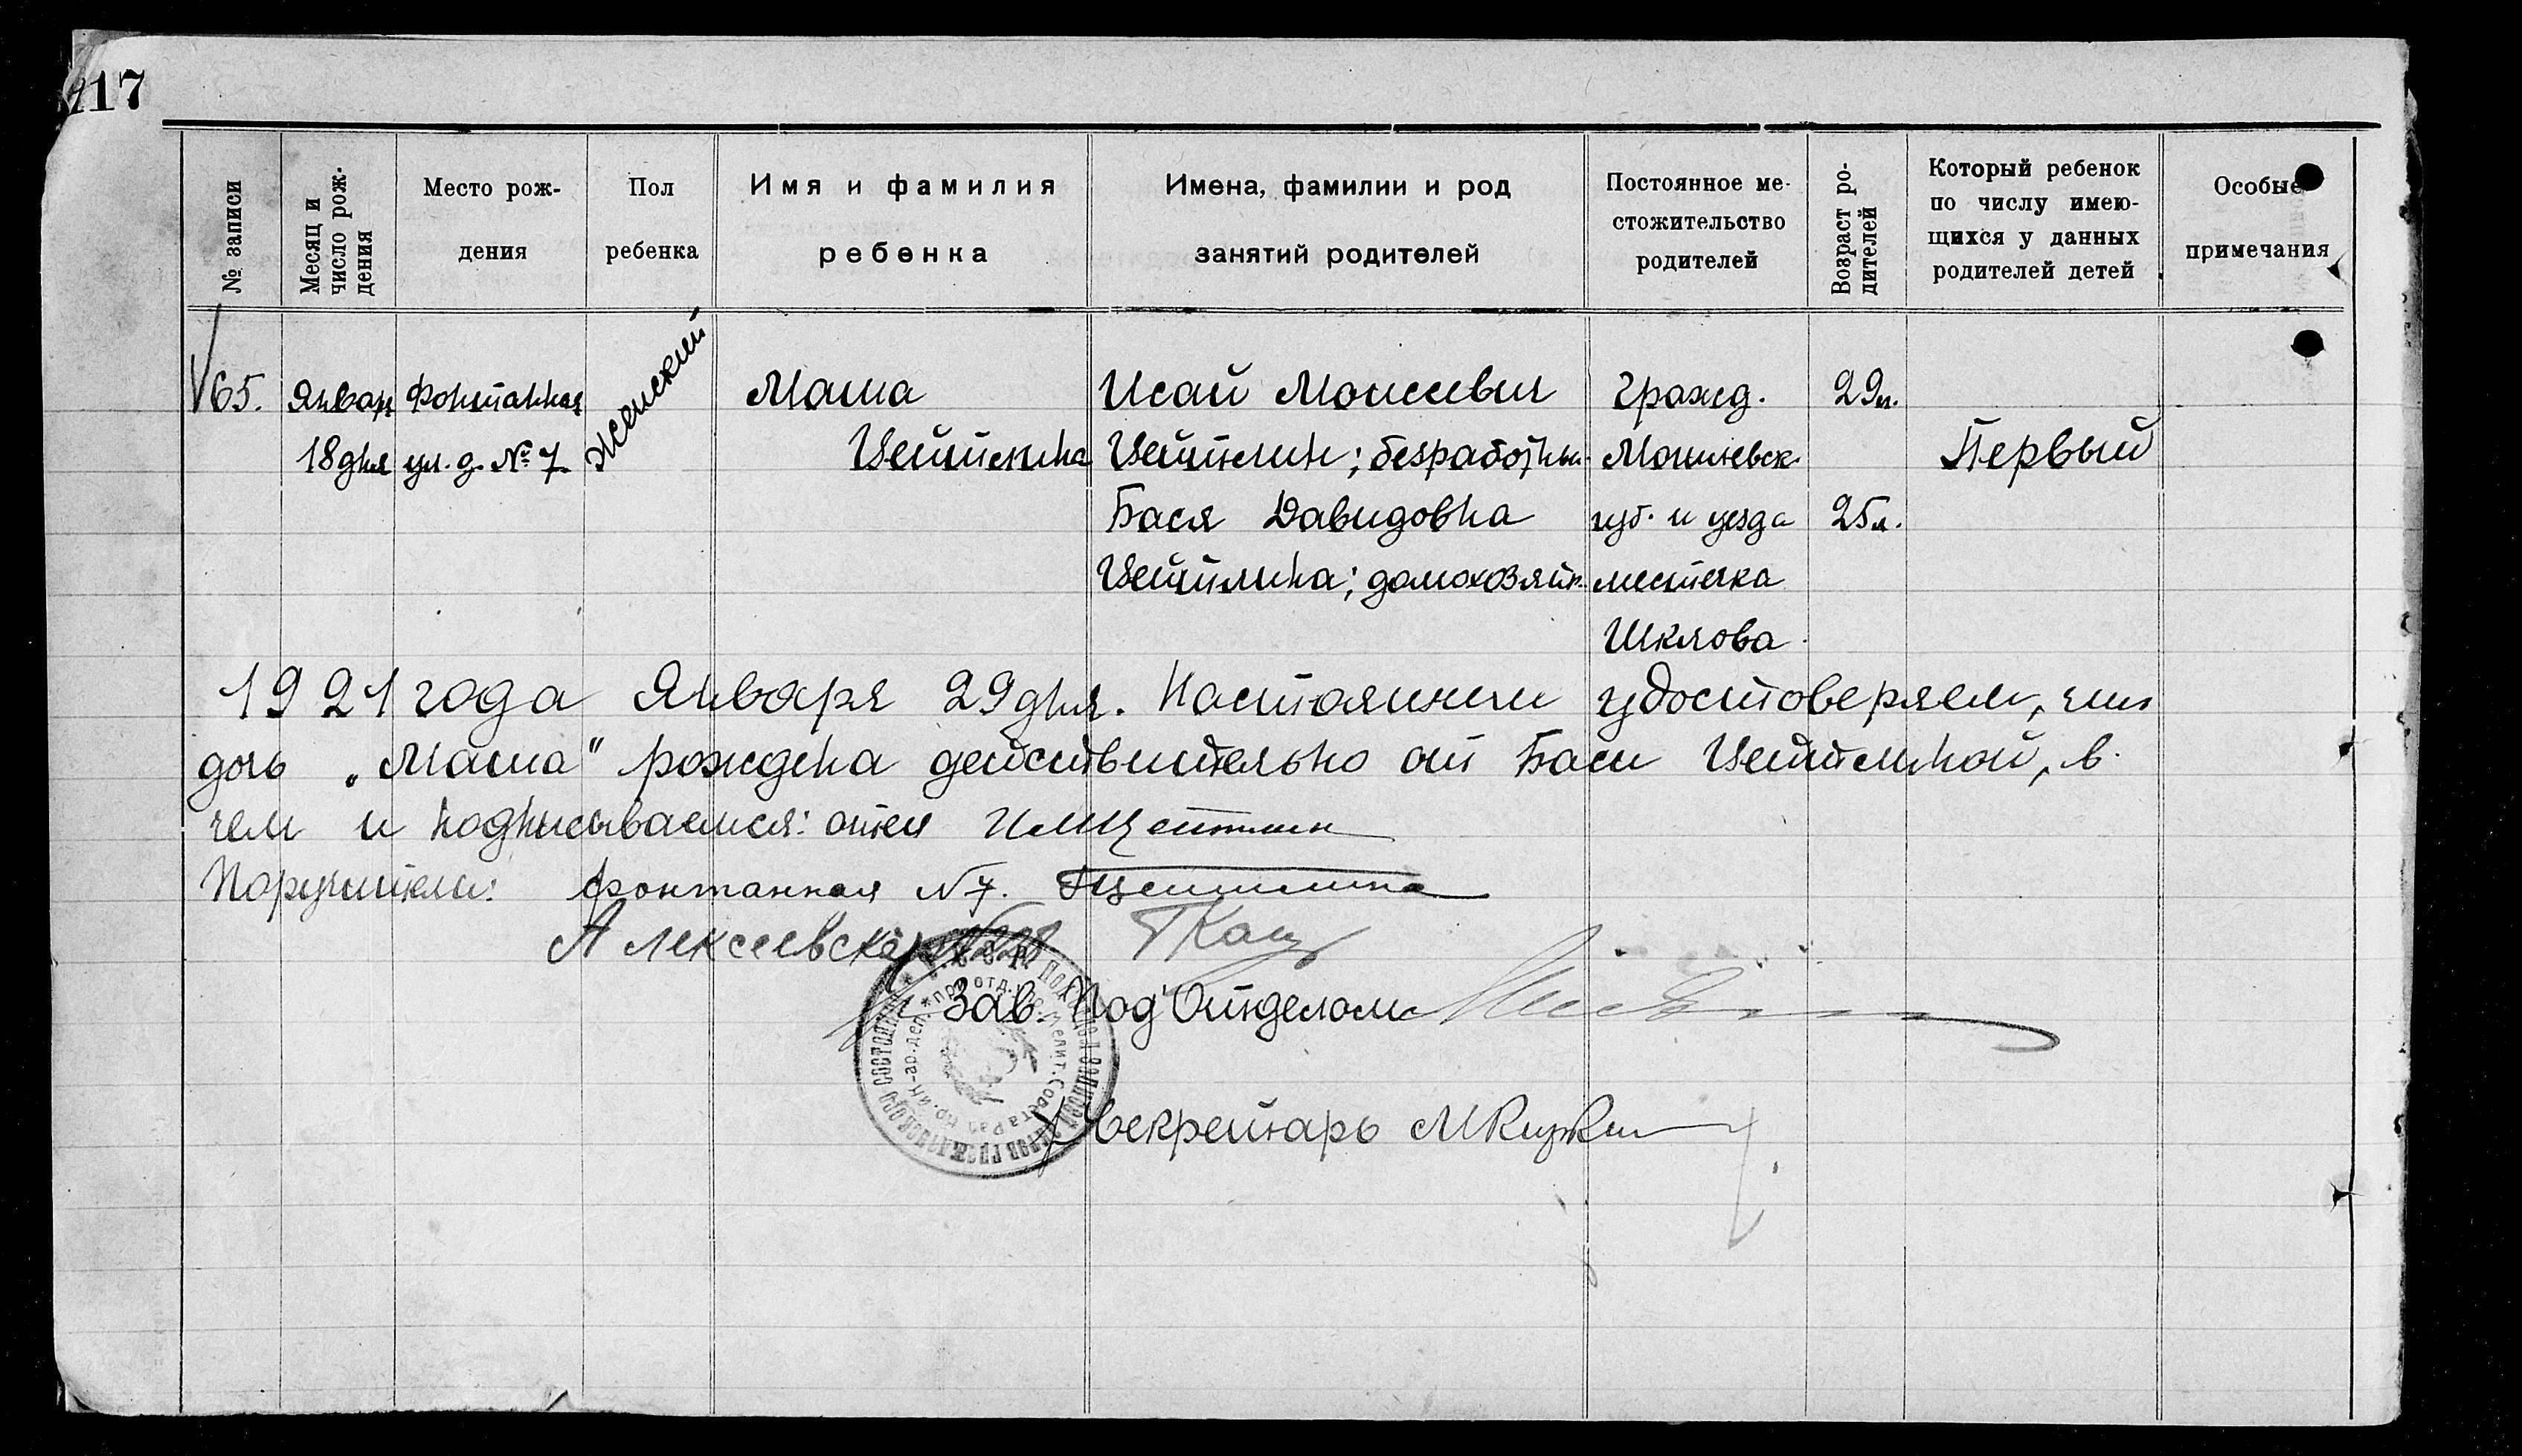 117
№ записи
Месяц и число рождения
Место рож-
дения
Пол
ребенка
Имя и фамилия
ребенка
Имена, фамилии и род
занятий родителей
Постоянное ме-
стожительство
родителей
Возраст ро-
дителей
Который ребенок
по числу имею-
щихся у данных
родителей детей
Особые
примечания
65. Январ Фонтанная Женский Маша Исай Моисеевич Гражд. 29 л.
18 дня ул. д. № 7 Цейтлина Цейтлин; безработный Могилевск. Первый
Бася Давидовна губ. и уезда 25 л.
Цейтлина; домохозяйк. местечка
Шклова
1921 года Января 29 дня. Настоящим удостоверяем, что
дочь „Маша" рождена действительно от Баси Цейтлиной, в
чем и подписываемся: отец И М Цейтлин
Поручители: фонтанная N 7. Цейтлина
Алексеевская ТКац
Зав. Под'Отделом
Секретарь